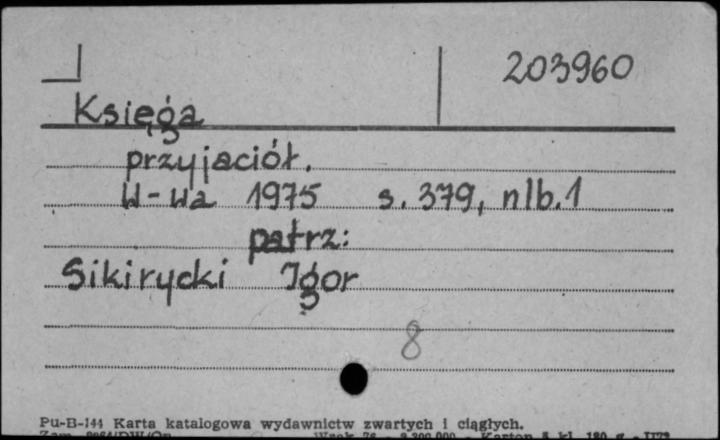 203960
Księga
przyjaciół.
W-wa 1975 s. 379, nlb.1
patrz:
Sikirycki Igor
8
Pu-B-144 Karta katalogowa wydawnictw zwartych i ciągłych.